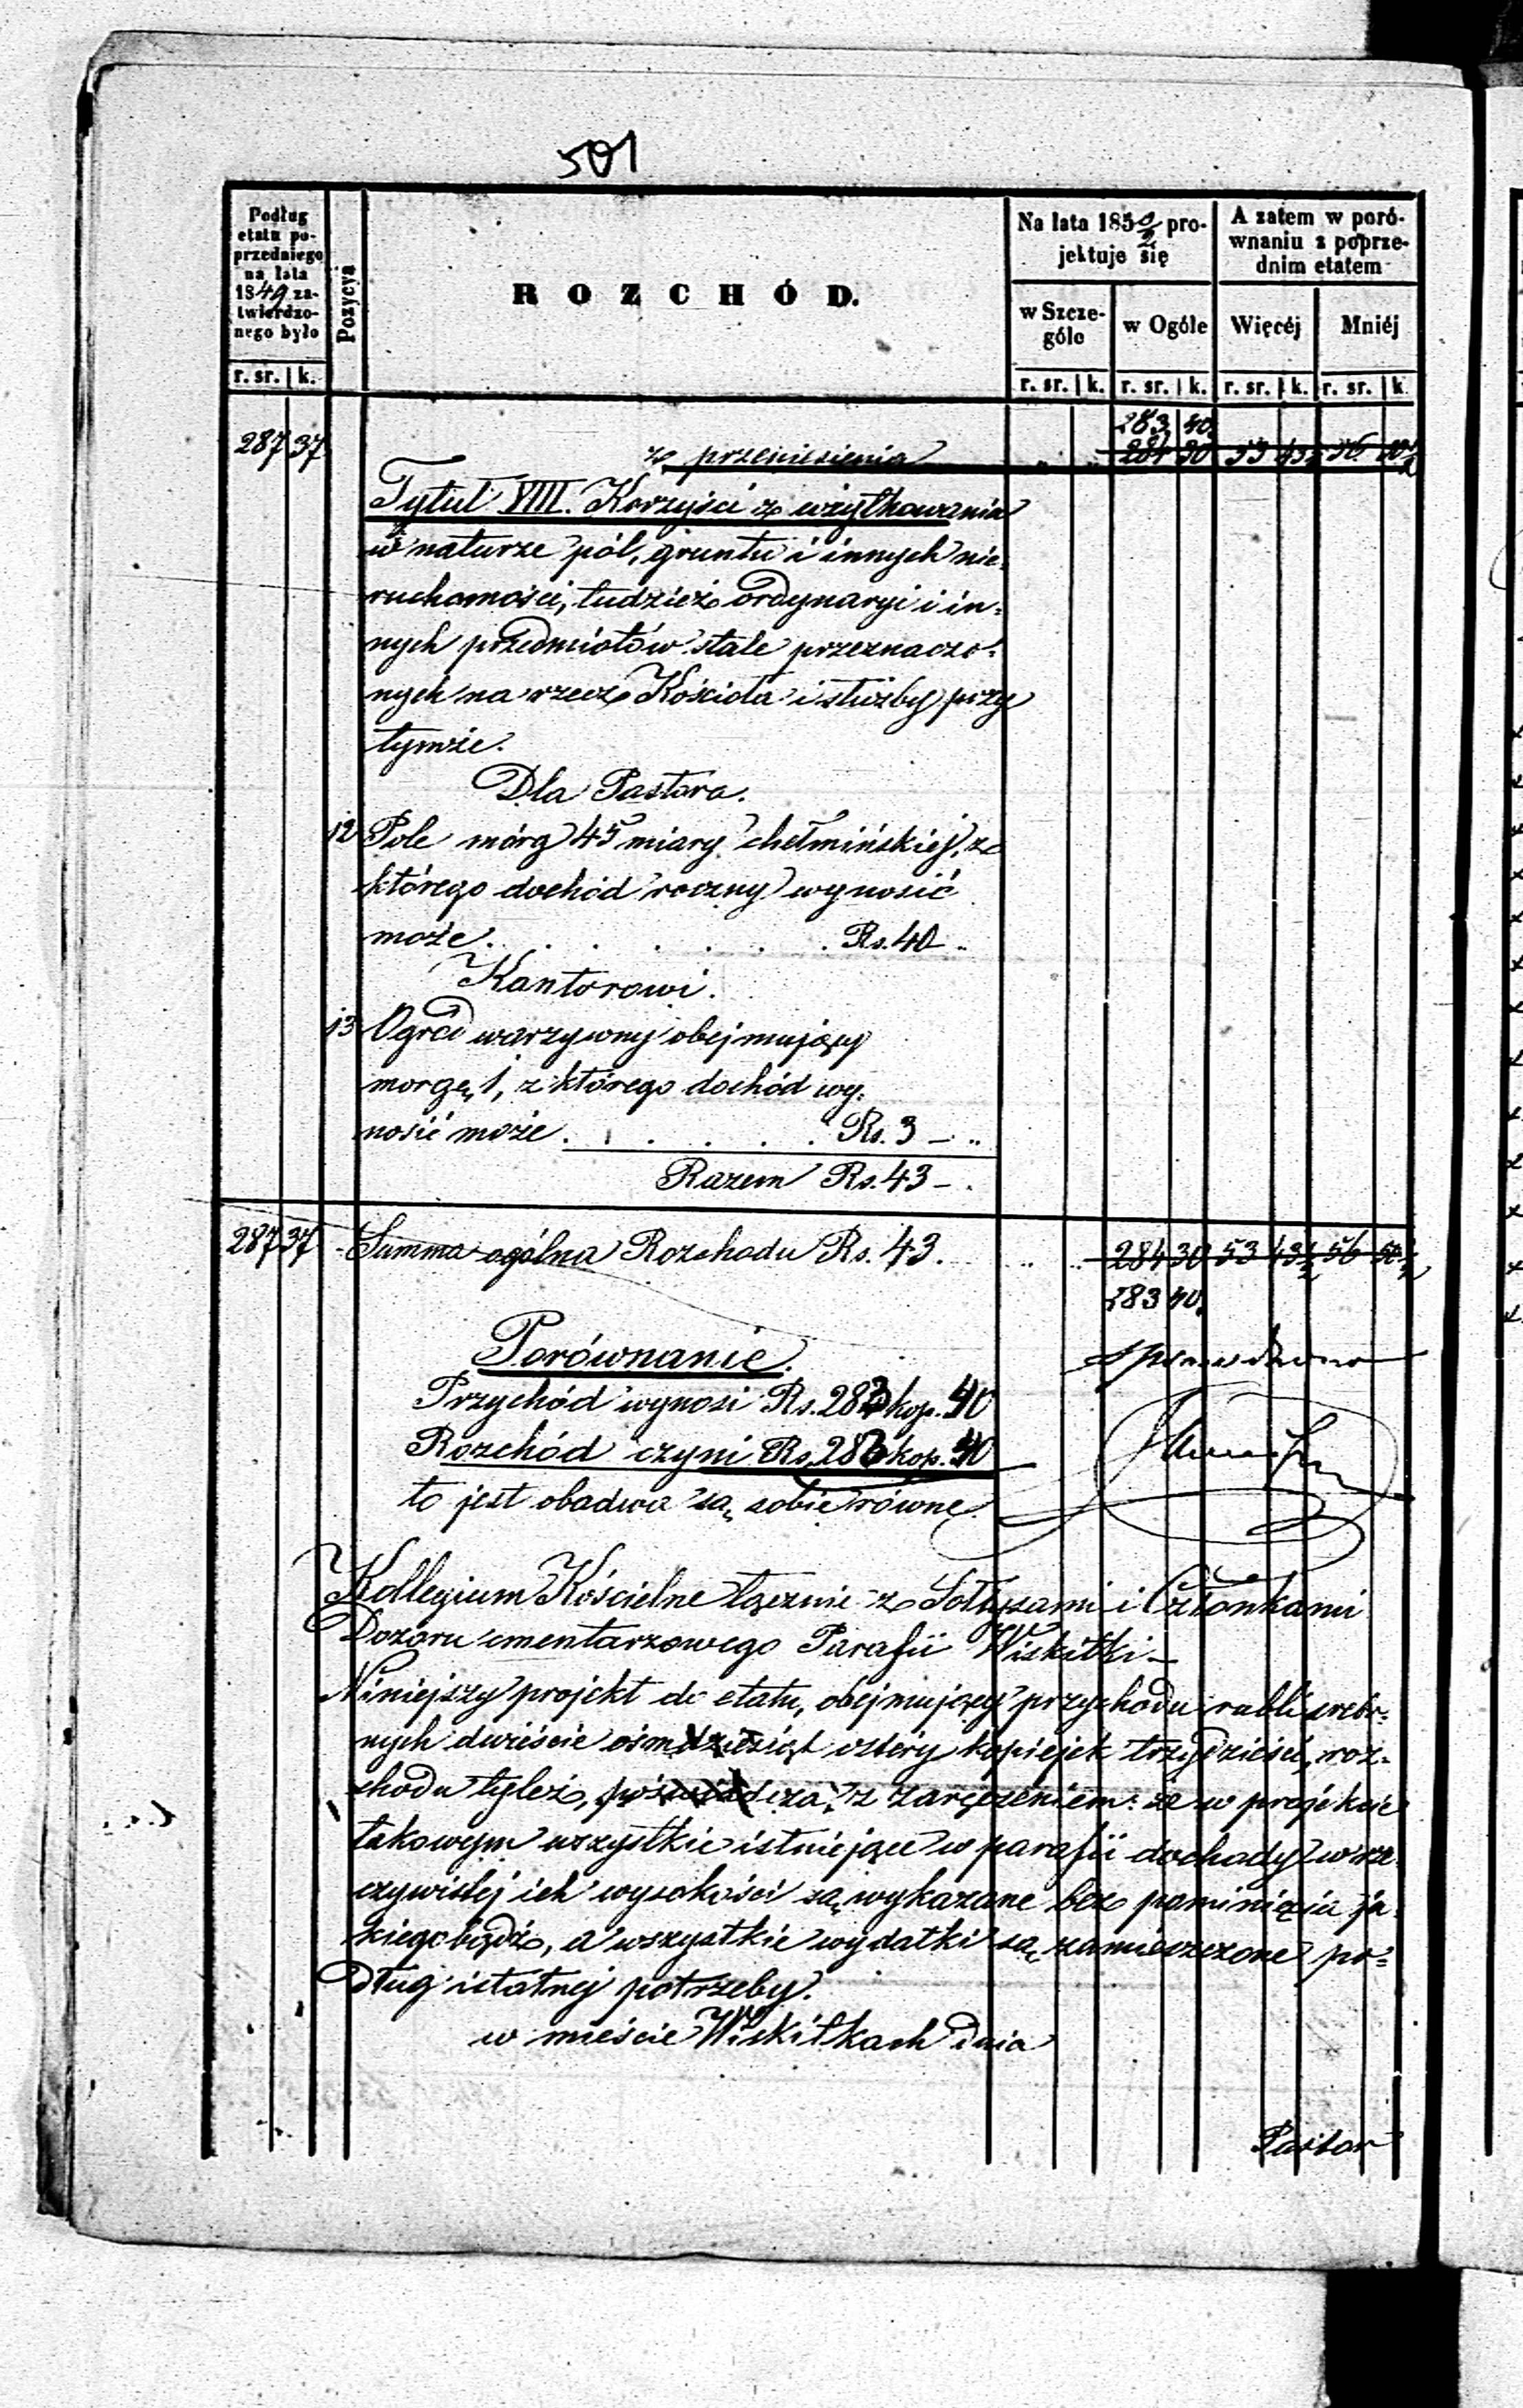 501
Podług etatu poprzedniego na lata 1849 zatwierdzonego było
Pozycya
ROZCHÓD.
Na lata 185 0/2 projektuje się
A zatem w porównaniu z poprzednim etatem
w Szczególe
w Ogóle
Więcéj
Mniéj
r. sr. k. r. sr. k. r. sr. k. r. sr. k. r. sr. k.
283 40
287 37 z przeniesienia „ „ 284 30 53 43½ 56 50½
Tytuł VIII. Korzyści z użytkowania
w naturze pól, gruntu i innych nie-
ruchomości, tudzież ordynaryi i in-
nych przedmiotów stale przeznaczo-
nych na rzecz Kościoła i służby przy
tymże.
Dla Pastora.
12 Pole mórg 45 miary chełmińskiéj, z
którego dochód roczny wynosić
może . . . . . . Rs. 40 „
Kantorowi.
13 Ogród warzywny obejmujący
morgę 1, z którego dochód wy-
nosić może . . . . . . Rs. 3 – „
Razem Rs. 43 – .
287 37 Summa ogólna Rozchodu Rs. 43. „ „ 284 30 53 43½ 56 50½
283 40
Porównanie.
Sprawdzono
Przychód wynosi Rs. 283 kop. 40
Rozchód czyni Rs. 283 kop. 40
to jest obadwa są sobie równe.
Kollegium Kościelne łącznie z Sołtysami i Członkami
Dozoru cmentarzowego Parafii Wiskitki –
Niniejszy projekt do etatu, obejmujący przychodu rubli srebr-
nych dwieście ośmdziesiąt cztéry kopiejek trzydzieści, roz-
chodu tyleż, poświadcza, z zaręczeniem: że w projekcie
takowym wszystkie istniejące w parafii dochody w rze-
czywistéj ich wysokości są wykazane bez pominięcia ja-
kiegobądź, a wszystkie wydatki są zamieszczone po-
dług istotnéj potrzeby.
w mieście Wiskitkach dnia
Pastor